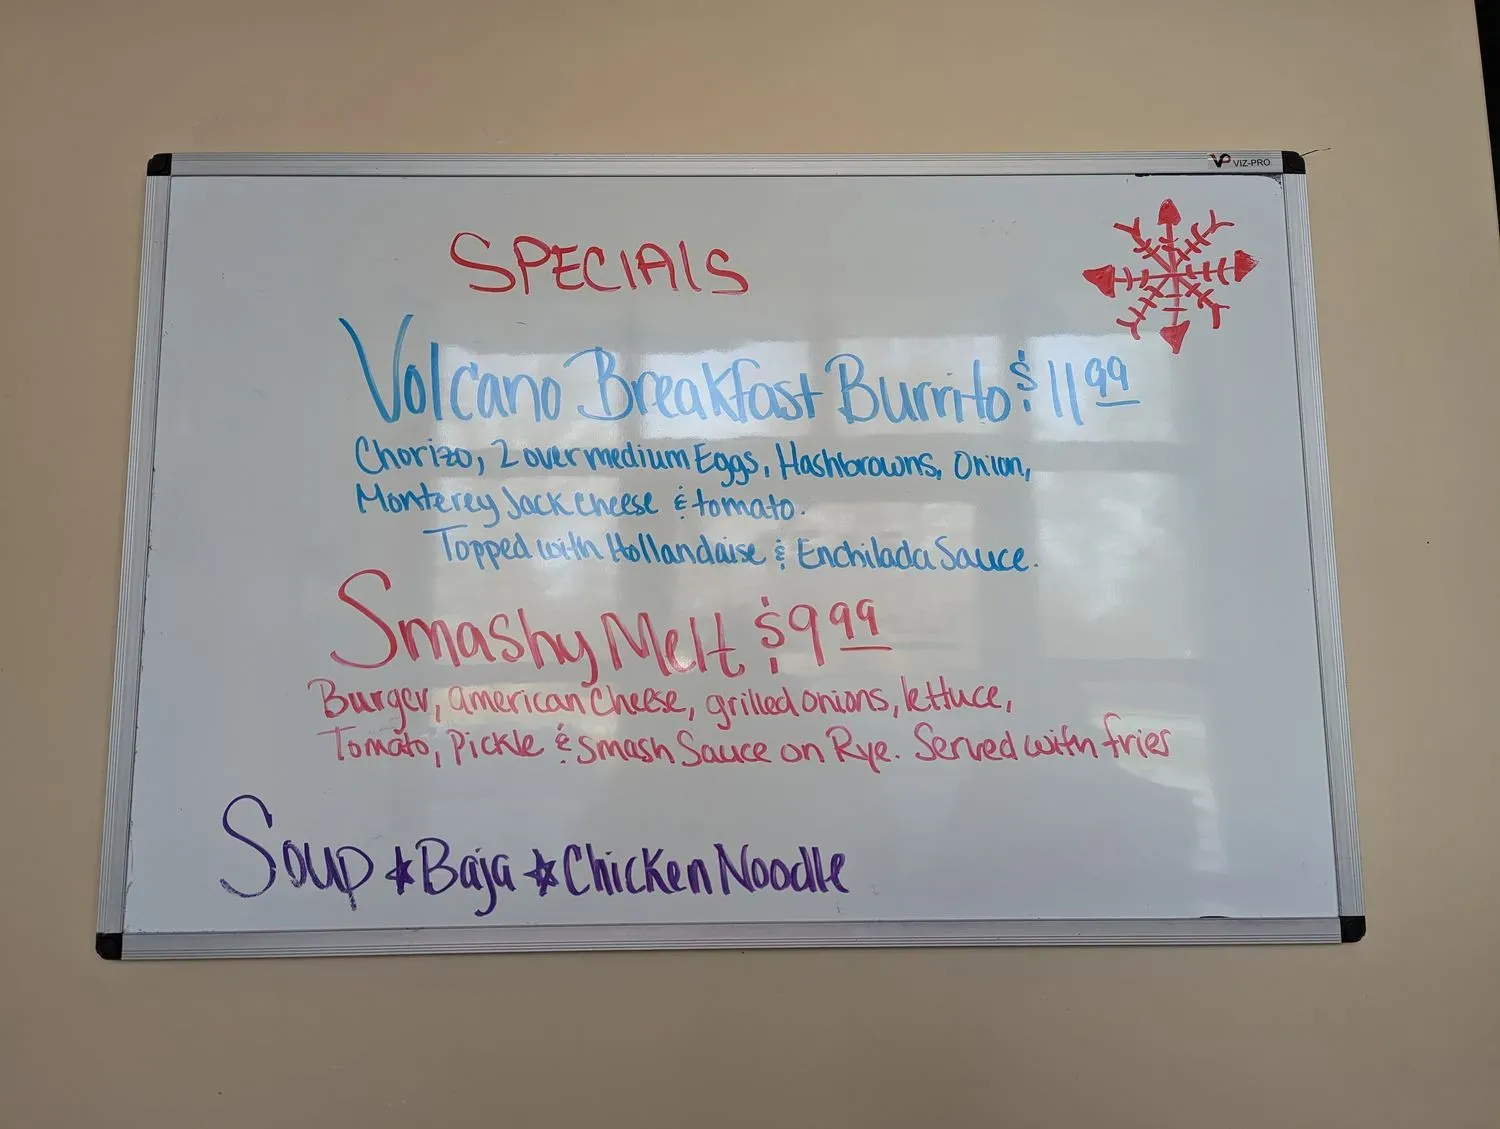 VP VIZ-PRO
SPECIALS
Volcano Breakfast Burrito $11.99
Chorizo, 2 over medium Eggs, Hashbrowns, Onion,
Monterey Jack cheese & tomato.
Topped with Hollandaise & Enchilada Sauce.
Smashy Melt $9.99
Burger, american cheese, grilled onions, lettuce,
Tomato, pickle & smash sauce on Rye. Served with fries
Soup ★ Baja ★ Chicken Noodle